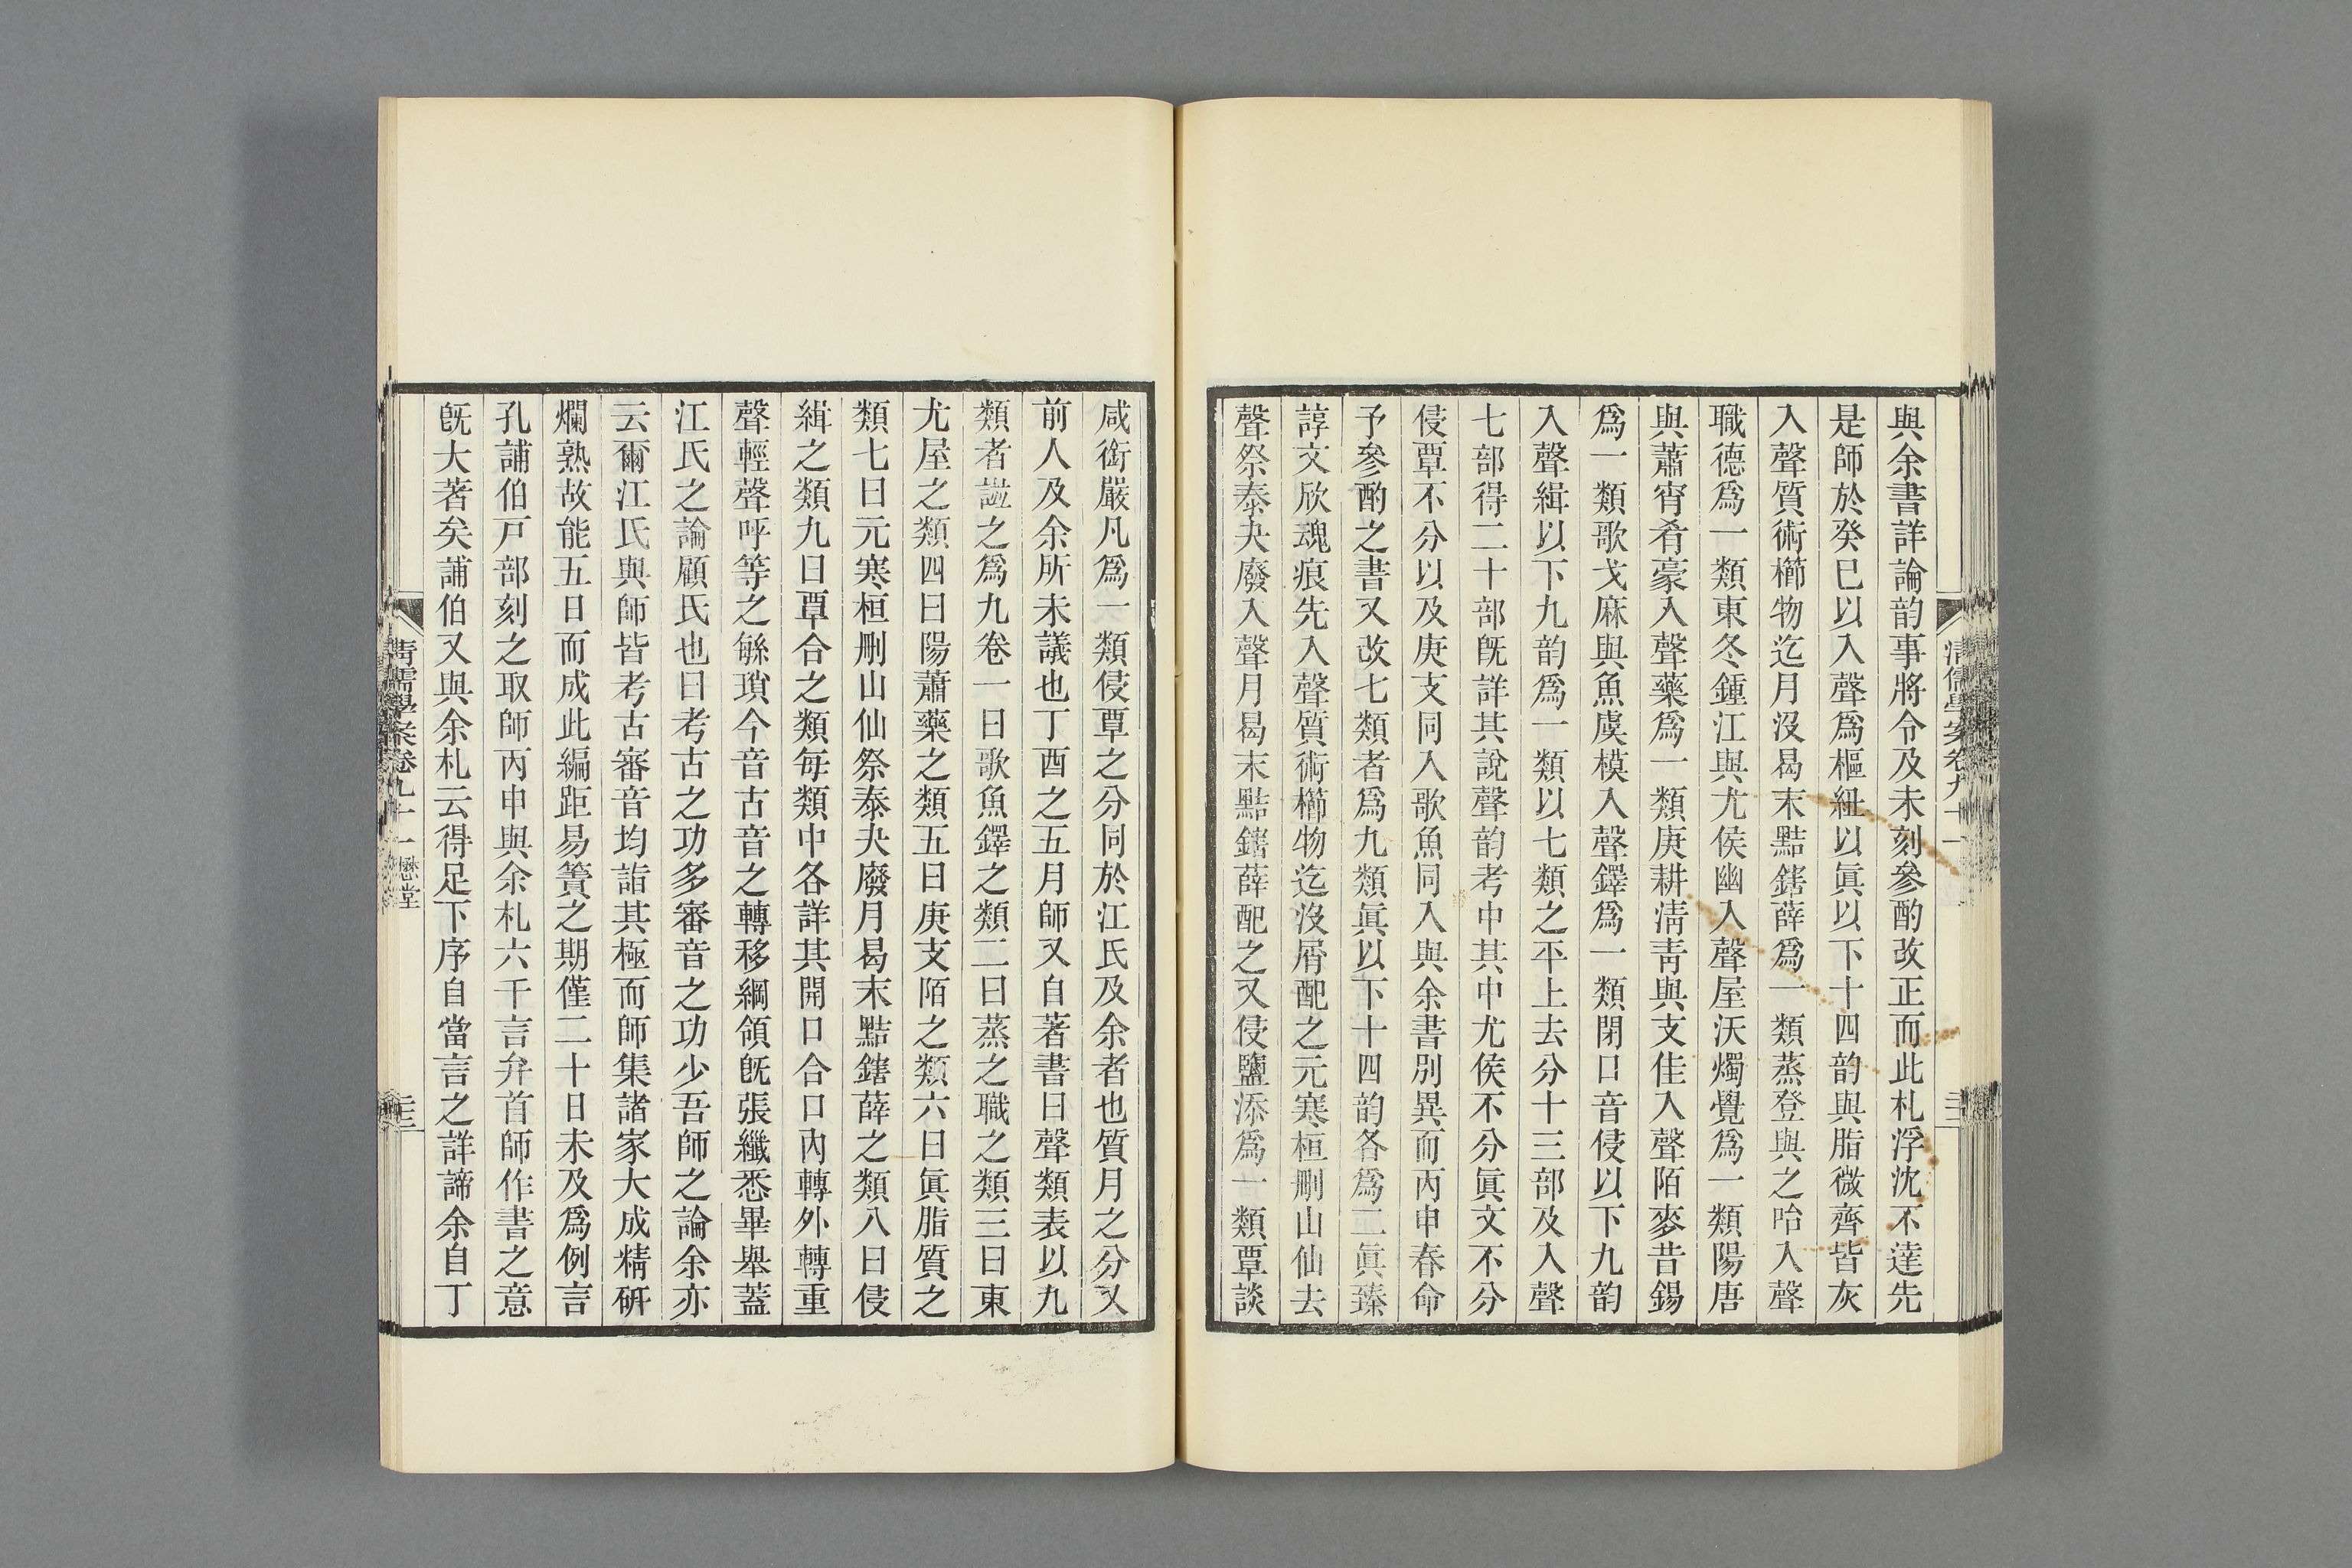 與余書詳論韵事將令及未刻參酌改正而此札浮沈不達先
是師於癸巳以入聲爲樞紐以眞以下十四韵與脂微齊皆灰
入聲質術櫛物迄月沒曷末黠鎋薛爲一類蒸登與之咍入聲
職德爲一類東冬鍾江與尤侯幽入聲屋沃燭覺爲一類陽唐
與蕭宵肴豪入聲藥爲一類庚耕清青與支佳入聲陌麥昔錫
爲一類歌戈麻與魚虞模入聲鐸爲一類閉口音侵以下九韵
入聲緝以下九韵爲一類以七類之平上去分十三部及入聲
七部得二十部旣詳其說聲韵考中其中尤侯不分眞文不分
侵覃不分以及庚支同入歌魚同入與余書別異而丙申春命
予參酌之書又改七類者爲九類眞以下十四韵各爲二眞臻
諄文欣魂痕先入聲質術櫛物迄沒屑配之元寒桓刪山仙去
聲祭泰夬廢入聲月曷末黠鎋薛配之又侵鹽添爲一類覃談
咸銜嚴凡爲一類侵覃之分同於江氏及余者也質月之分又
前人及余所未議也丁酉之五月師又自著書曰聲類表以九
類者譜之爲九卷一曰歌魚鐸之類二曰蒸之職之類三曰東
尤屋之類四曰陽蕭藥之類五曰庚支陌之類六曰眞脂質之
類七曰元寒桓刪山仙祭泰夬廢月曷末黠鎋薛之類八曰侵
緝之類九曰覃合之類每類中各詳其開口合口內轉外轉重
聲輕聲呼等之緐瑣今音古音之轉移綱領旣張纖悉畢舉蓋
江氏之論顧氏也曰考古之功多審音之功少吾師之論余亦
云爾江氏與師皆考古審音均詣其極而師集諸家大成精硏
爛熟故能五日而成此編距易簀之期僅二十日未及爲例言
孔誧伯戸部刻之取師丙申與余札六千言弁首師作書之意
旣大著矣誧伯又與余札云得足下序自當言之詳諦余自丁
清儒學案卷九十一 懋堂